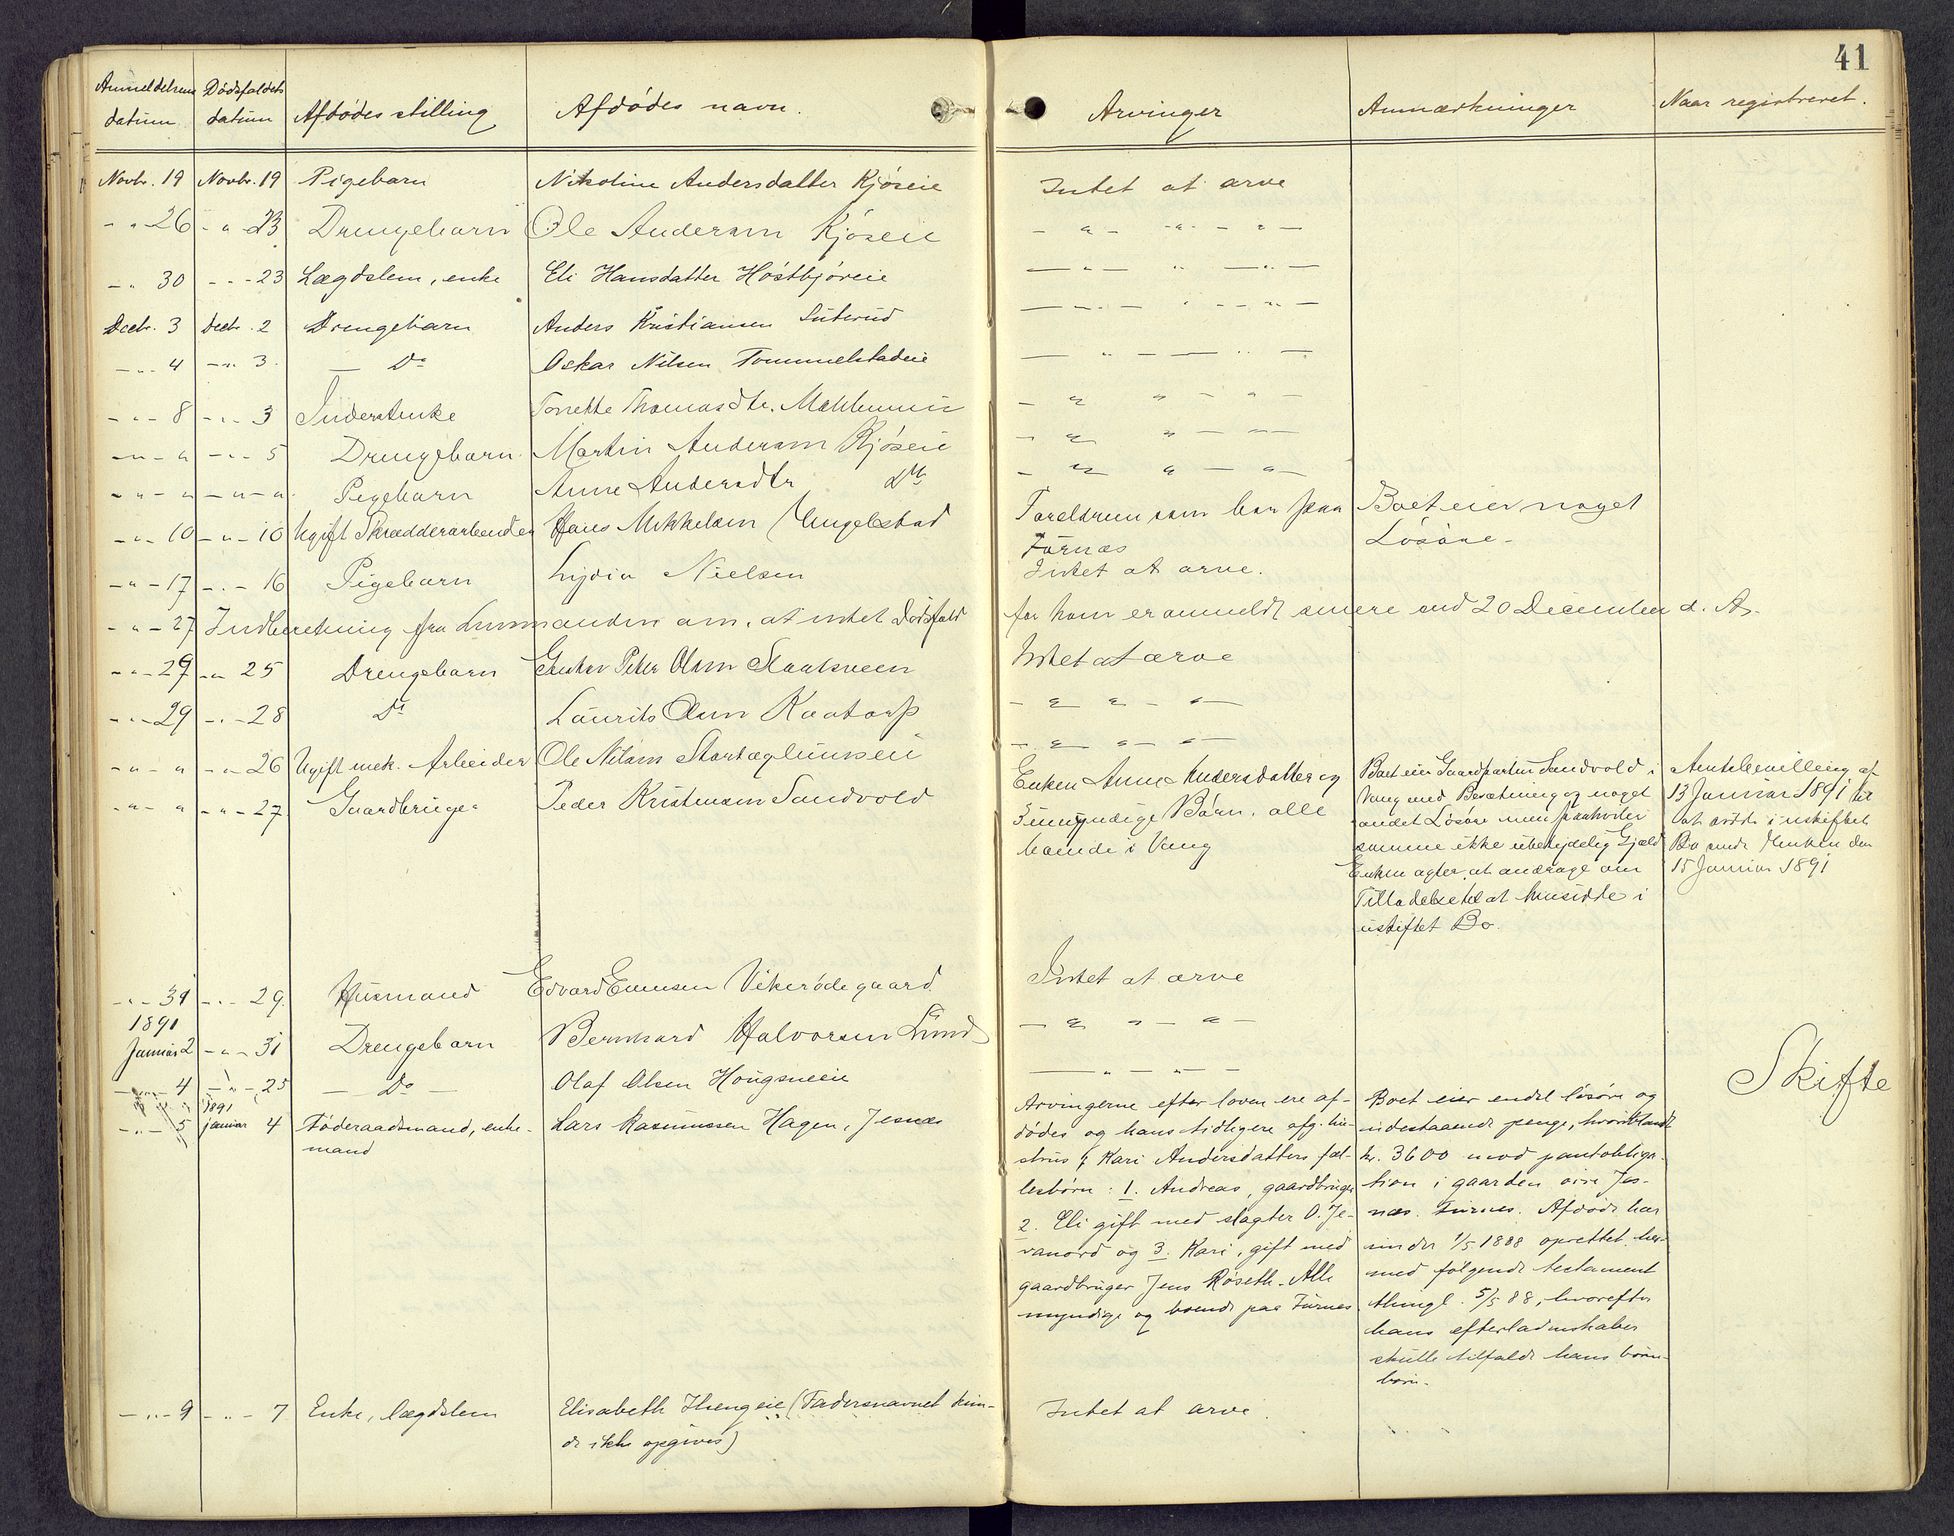 41
Anmeldelsens datum Dødsfaldets datum Afdødes stilling Afdødes navn. Arvinger Anmærkninger Naar registreret.
Novbr. 19 Novbr. 19 Pigebarn Nikoline Andersdatter Kjøseie Intet at arve
- " 26 - " - 23 Drengebarn Ole Andersen Kjøseie - " - - " - - " -
- " 30 - " - 23 Lægdslem, enke Eli Hansdatter Høstbjøreie - " - " - " -
Decbr. 3 Decbr. 2 Drengebarn Anders Kristiansen Suterud - " - " - " -
- " - 4 - " - 3. - Do Oskar Nilsen Tommelstadeie - " - " -
- " - 8 - " - 3 Inderstenke Tonette Thomasdtr. - " " - " -
- " - " - " - 5 Drengebarn Martin Andersen Kjøseie - " " - " -
- " - " - " - " Pigebarn Anne Andersdtr Do - " " - " -
- " - 10 - " - 10 Ugift Skrædderarbeider Hans Mikkelsen Engelstad Forældrene som bor paa Boet eier noget
Furnæs Løsøre -
- " - 17 - " - 16 Pigebarn Lydia Nielsen Intet at arve.
- " - 27 Indberetning fra Lensmanden om, at intet Dødsfald for ham er anmeldt senere end 20 December d. A.
- " - 29 - " - 25 Drengebarn Gustav Peter Olsen Staaksveen Intet at arve
- " - 29 - " - 28 Do Laurits Olsen Kaatorp - " " - " -
- " - " - " - 26 Ugift mek. Arbeider Ole Nilsen - " - " - " -
- " - " - " - 27 Gaardbruger Peder Kristiansen Sandvold Enken Anne Andersdatter og Boet eier Gaardparten Sandvold i Amtsbevilling af
5 umyndige Børn, alle Vang med Besætning og noget 13 Januar 1891 til
boende i Vang andet Løsøre men paahviler at sidde i uskiftet
samme ikke ubetydelig Gjæld Bo sendt Enken den
Enken agter at andrage om 15 Januar 1891
Tilladelse til at hensidde i
uskiftet Bo.
- " - 31 - " - 29. Husmand Edvard Evensen Vikerødegaard Intet at arve
1891
Januar 2 - " - 31 Drengebarn Bernhard Halvorsen Lund - " " - " -
- " - 4 - " - 25 - Do - Olaf Olsen Hougsneeie - " - " -
- " - 5 1891 januar 4 Føderaadsmand, enke- Lars Rasmussen Hagen, Jesnæs Arvingerne efter loven ere af- Boet eier endel løsøre og Skifte
mand dødes og hans tidligere afg. hu- udestaaende penge, hvoriblandt
strus Kari Andersdatters fæl- kr. 3600 mod pantobliga-
lesbørn: 1. Andreas, gaardbruger tion i gaarden øvre Jes-
2. Eli gift med slagter O. Je- næs. Furnes. Afdøde har
vanord og 3. Kari, gift med under 1/5 1888 oprettet her-
gaardbruger Jens Røseth. Alle med følgende testament
myndige og boende paa Furnes. thingl. 5/5 88, hvorefter
hans efterladenskaber
skulle tilfalde hans børne-
børn.
- " - 9 - " - 7 Enke, lægdslem Elisabeth Hengeie (Fadersnavnet kun- Intet at arve.
de ikke opgives)